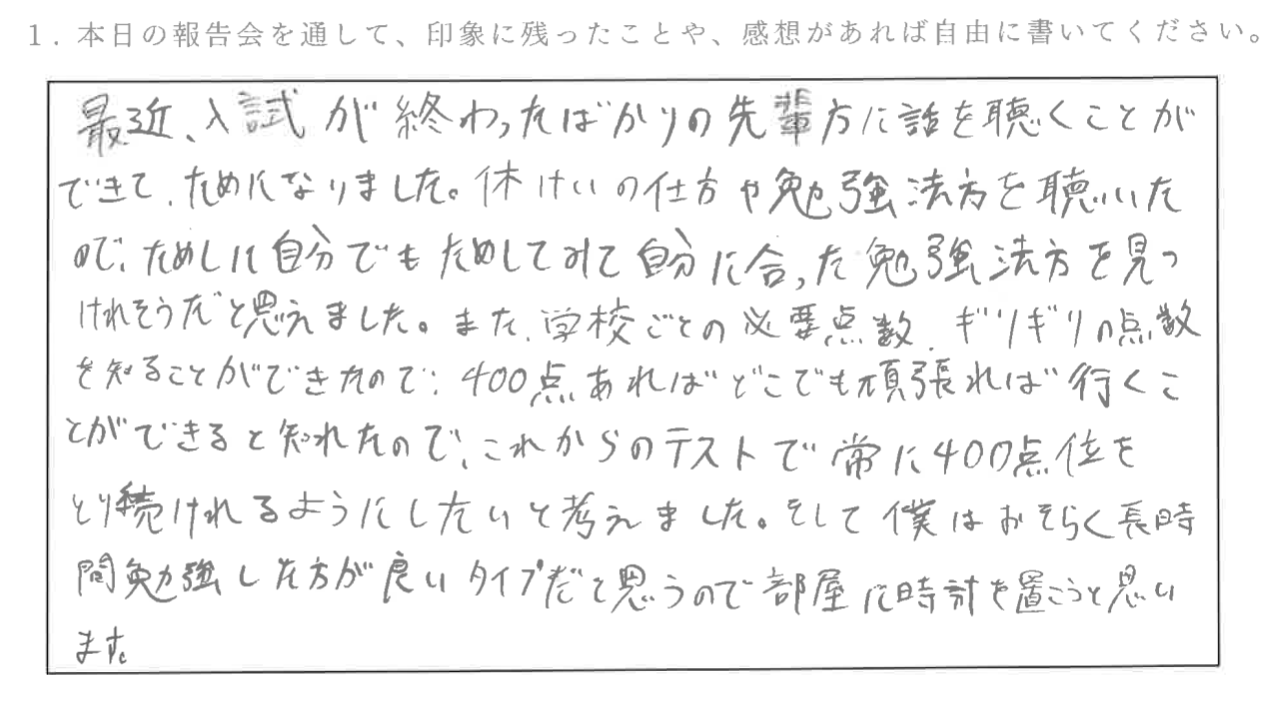 1. 本日の報告会を通して、印象に残ったことや、感想があれば自由に書いてください。
最近、入試が終わったばかりの先輩方に話を聴くことが
できて、ためになりました。休けいの仕方や勉強法方を聴いた
ので、ためしに自分でもためしてみて自分に合った勉強法方を見つ
けれそうだと思えました。また、学校ごとの必要点数、ギリギリの点数
を知ることができたので、400点あればどこでも頑張れば行くこ
とができると知れたので、これからのテストで常に400点位を
とり続けれるようにしたいと考えました。そして僕はおそらく長時
間勉強した方が良いタイプだと思うので部屋に時計を置こうと思い
ます。